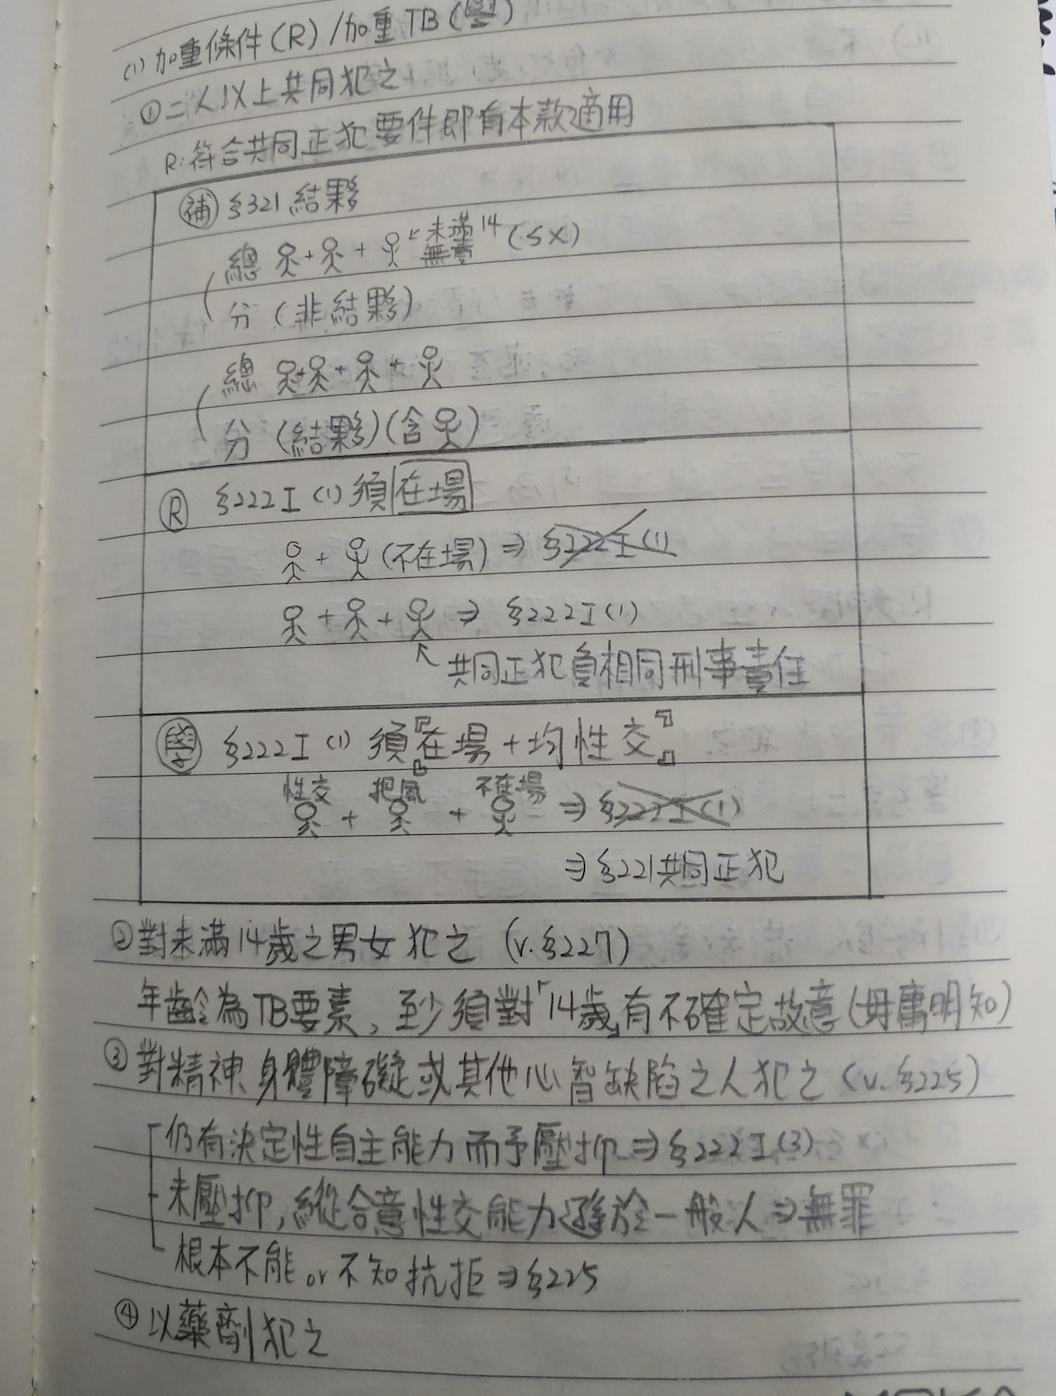 (1) 加重條件(R)/加重TB(學)
①二人以上共同犯之
R:符合共同正犯要件即有本款適用
補 §321結夥
總 + + 未滿14無責 (§X)
分 (非結夥)
總 + + +
分 (結夥)(含 )
R §222I(1)須在場
+ (不在場)⇒ §222I(1)
+ + ⇒ §222I(1)
共同正犯負相同刑事責任
學 §222I(1) 須『在場+均性交』
性交 把風 不在場
+ + ⇒ §222I(1)
⇒ §221共同正犯
②對未滿14歲之男女犯之 (v.§227)
年齡為TB要素,至少須對「14歲」有不確定故意(毋庸明知)
③對精神、身體障礙或其他心智缺陷之人犯之 (v.§225)
仍有決定性自主能力而予壓抑⇒§222I(3)
未壓抑,縱合意性交能力遜於一般人⇒無罪
根本不能or不知抗拒⇒§225
④以藥劑犯之